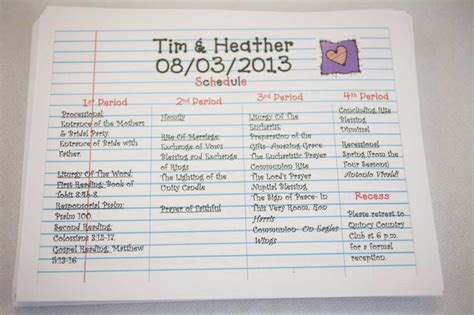 Tim & Heather
08/03/2013
Schedule
1st Period
Processional
Entrance of the Mothers
& Bridal Party.
Entrance of Bride with
Father.
Liturgy Of The Word
First Reading: Book of
Tobit 8:5b-8.
Responsorial Psalm:
Psalm 100
Second Reading:
Colossians 3:12-17
Gospel Reading, Matthew
5:13-16
2nd Period
Homily
Rite Of Marriage:
Exchange of Vows
Blessing and Exchange
of Rings
The Lighting of the
Unity Candle
Prayer of Faithful
3rd Period
Liturgy Of The
Eucharist
Preparation of the
Gifts- Amazing Grace
The Eucharistic Prayer
Communion Rite
The Lord's Prayer
Nuptial Blessing
The Sign of Peace- In
This Very Room, Ron
Harris
Communion- On Eagles
Wings
4th Period
Concluding Rite
Blessing
Dismissal
Recessional
Spring (from The
Four Seasons)
Antonio Vivaldi
Recess
Please retreat to
Quincy Country
Club at 6 p.m.
for a formal
reception.